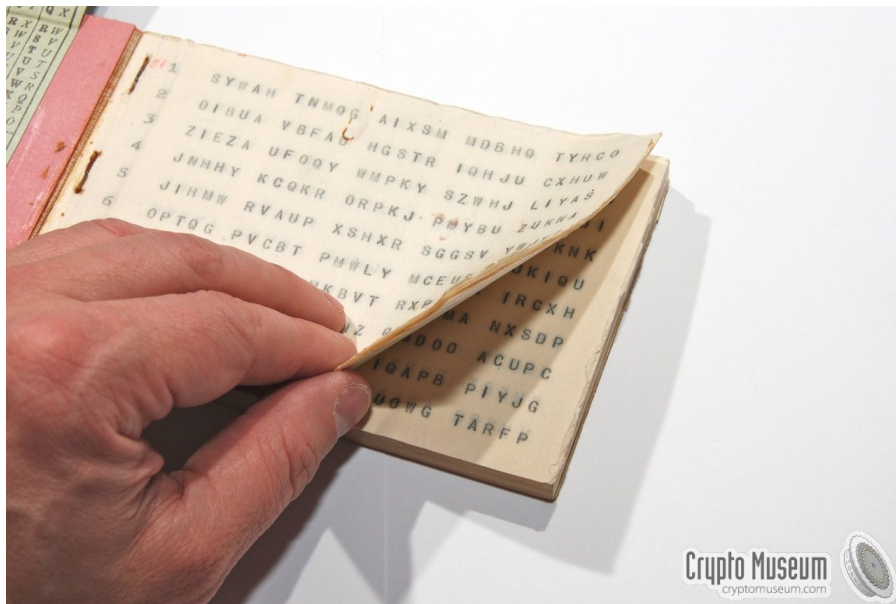 1 SYWAH TNMOG AIXSM MDBHQ TYRCO
2 OIBUA VBFAU HGSTR IQHJU CXHUW
3 ZIEZA UFOQY WMPKY SZWHJ LIYAS
4 JNHHY KCQKR ORPKJ PMYBU ZUKNA
5 JIHMW RVAUP XSHXR SGGSV
6 OPTQG PVCBT PMWLY
IRCXH
NXSDP
ACUPC
IQAPB PIYJG
TARFP
Crypto Museum
cryptomuseum.com